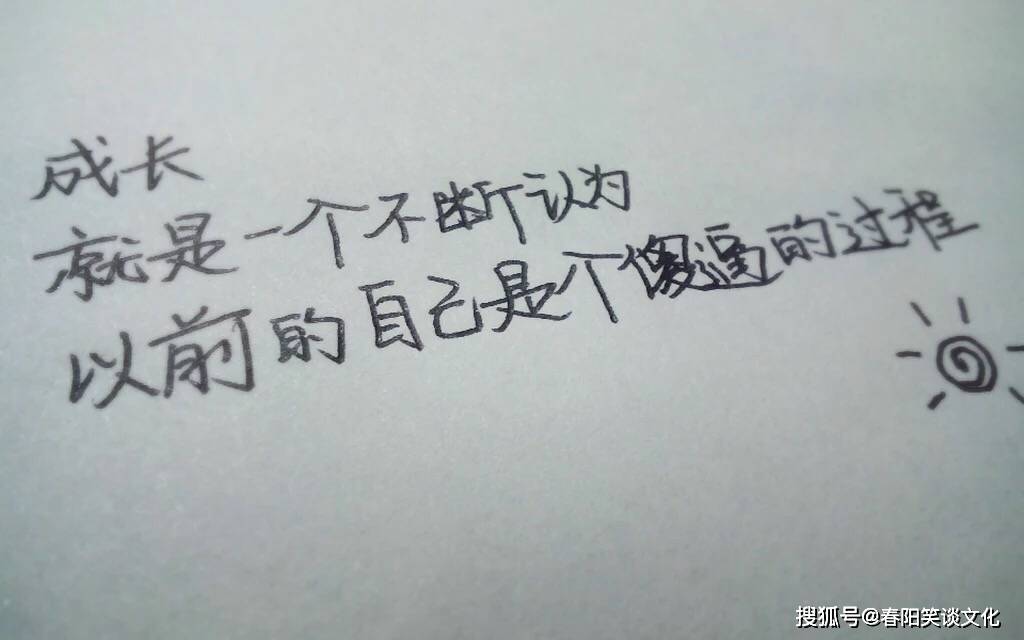 成长
就是一个不断认为
以前的自己是个傻逼的过程
搜狐号@春阳笑谈文化